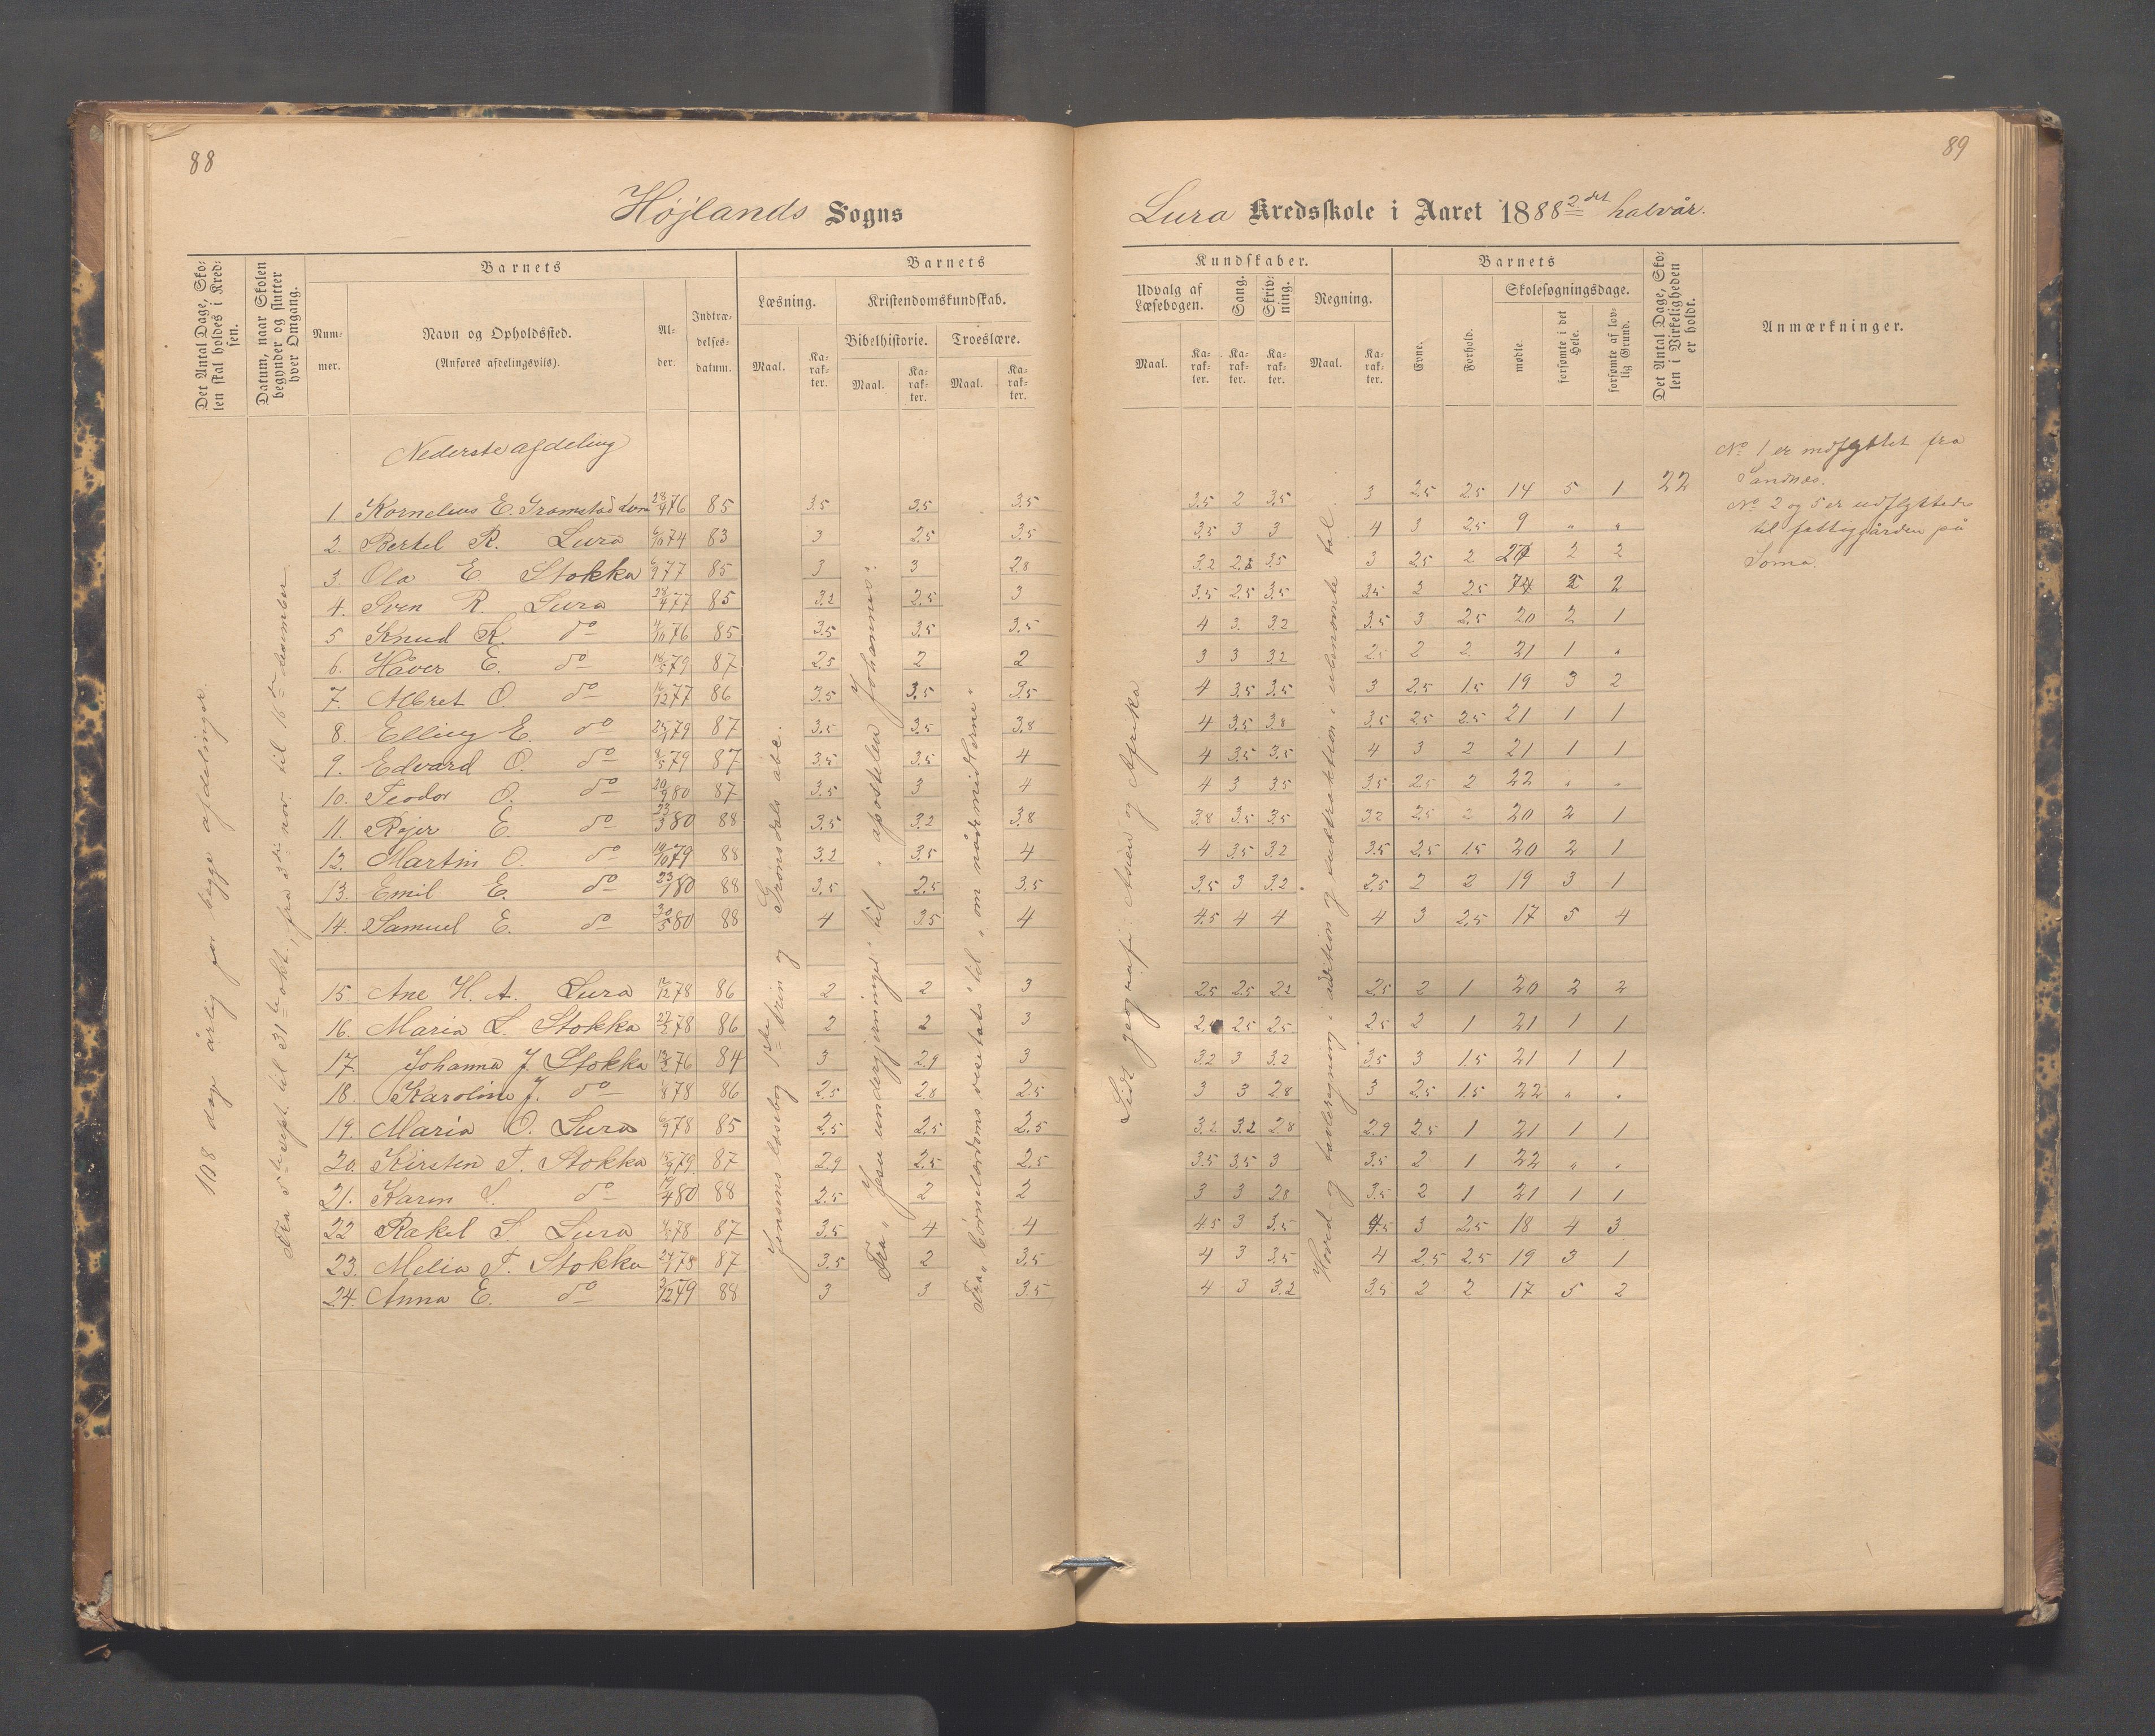 88
89
Højlands Sogns
Lura Kredsskole i Aaret 1888 2det halvår.
Det Antal Dage, Skolen skal holdes i Kredsen.
Datum, naar Skolen begynder og slutter hver Omgang.
Barnets
Nummer.
Navn og Opholdssted.
(Anføres afdelingsvis).
Alder.
Indtrædelsesdatum.
Barnets
Læsning.
Kristendomskundskab.
Bibelhistorie.
Troeslære.
Maal.
Karakter.
Maal.
Karakter.
Maal.
Karakter.
Kundskaber.
Udvalg af Læsebogen.
Sang.
Skrivning.
Regning.
Maal.
Karakter.
Karakter.
Karakter.
Maal.
Karakter.
Barnets
Evne.
Forhold.
Skolesøgningsdage.
mødte.
forsømte i det Hele.
forsømte af lovlig Grund.
Det Antal Dage, Skolen i Virkeligheden er holdt.
Anmærkninger.
108 dage årlig for begge afdelinger.
Fra 5te sept. til 31te okt., fra 3die nov. til 16de desember
Jensens læsebog 1ste trin og Grønsdals abc.
Fra "Jesu undergjerninger" til "apostelen Johannes".
Fra "børnelærdoms visitats" til "om nådemidlerne".
Lidt geografi: Asien og Afrika
Hoved- og tavleregning i addition og subtraktion i ubenævnte tal.
Nederste afdeling
1. Kornelius E. Gramstad Lura 28/9 76 85 3.5 3.5 3.5 3.5 2 3.5 3 2.5 2.5 14 5 1 22
2. Bertel R. Lura 6/10 74 83 3 2.5 3.5 3.5 3 3 4 3 2.5 9 " "
3. Ola E. Stokka 6/9 77 85 3 3 2.8 3.2 3.5 3 2.5 2 2 2
4. Sven R. Lura 28/4 77 85 3.2 2.5 3 3.5 2.5 3.5 3.5 3 2.5 2 2
5 Knud R. do 4/10 76 85 3.5 3.5 3.5 4 3. 3.2 3.5 3 2.5 20 2 1
6. Håver E. do 79 87 2.5 2 2 3 3 3.2 2.5 2 2. 21 1 "
7. Albret O. do 16/12 77 86 3.5 3.5 3.5 4 3.5 3.5 3 2.5 1.5 19 3 2
8. Elling E. do 79 87 3.5 3.5 3.8 4 3.5 3.8 3.5 2.5 2.5 21 1 1
9. Edvard O. do 8/5 79 87 3.5 3.5 4 4 3.5 3.5 4 3 2 21 1 1
10. Teodor O. do 20/9 80 87 3.5 3 4 4 3 3.5 3.5 2.5 2 22 " "
11. Rejer E. do 23/3 80 88 3.5 3.2 3.8 3.8 3.5 3.5 3.2 2.5 2 20 2 1
12. Martin O. do 19/10 79 88 3.2 3.5 4 4 3.5 3.2 3.5 2.5 1.5 20 2 1
13. Emil E. do 23/1 80 88 3.5 2.5 3.5 3.5 3 3.2 2.5 2 2 19 3 1
14. Samuel E. do 30/5 80 88 4 3.5 4 4.5 4 4 4 3 2.5 17 5 4
15. Ane H. A. Lura 12/12 78 86 2 2 3 2.5 2.5 2.2 2.5 2 1 20 2 2
16. Maria L. Stokka 27/2 78 86 2 2 3 2.5 2.5 2.5 2 1 21 1 1
17. Johanna J. Stokka 76 84 3 2.9 3 3.2 3 3.2 3.5 3 1.5 21 1 1
18. Karoline J. do 78 86 2.5 2.8 2.5 3 3 2.8 3 2.5 1.5 22 " "
19. Maria O. Lura 6/9 78 85 2.5 2.5 2.5 3.2 3.2 2.8 2.9 2.5 1 21 1 1
20. Kirsten T. Stokka 15/9 79 87 2.9 2.5 2.5 3.5 3.5 3 3.5 2 1 22 " "
21. Karen S. do 19/4 80 88 2.5 2 2 3 3 2.8 3.5 2 1 21 1 1
22 Rakel S. Lura 78 87 3.5 4 4 4.5 3 3.5 4.5 3 2.5 18 4 3
23. Melia T. Stokka 78 87 3.5 2 3.5 4 3 3.5 4 2.5 2.5 19 3 1
24. Anna E. do 3/12 79 88 3 3 3.5 4 3 3.2 3.5 2 2 17 5 2
No 1 er indflyttet fra
Sandnes.
No 2 og 5 er udflyttede
til fattiggården på
Soma.